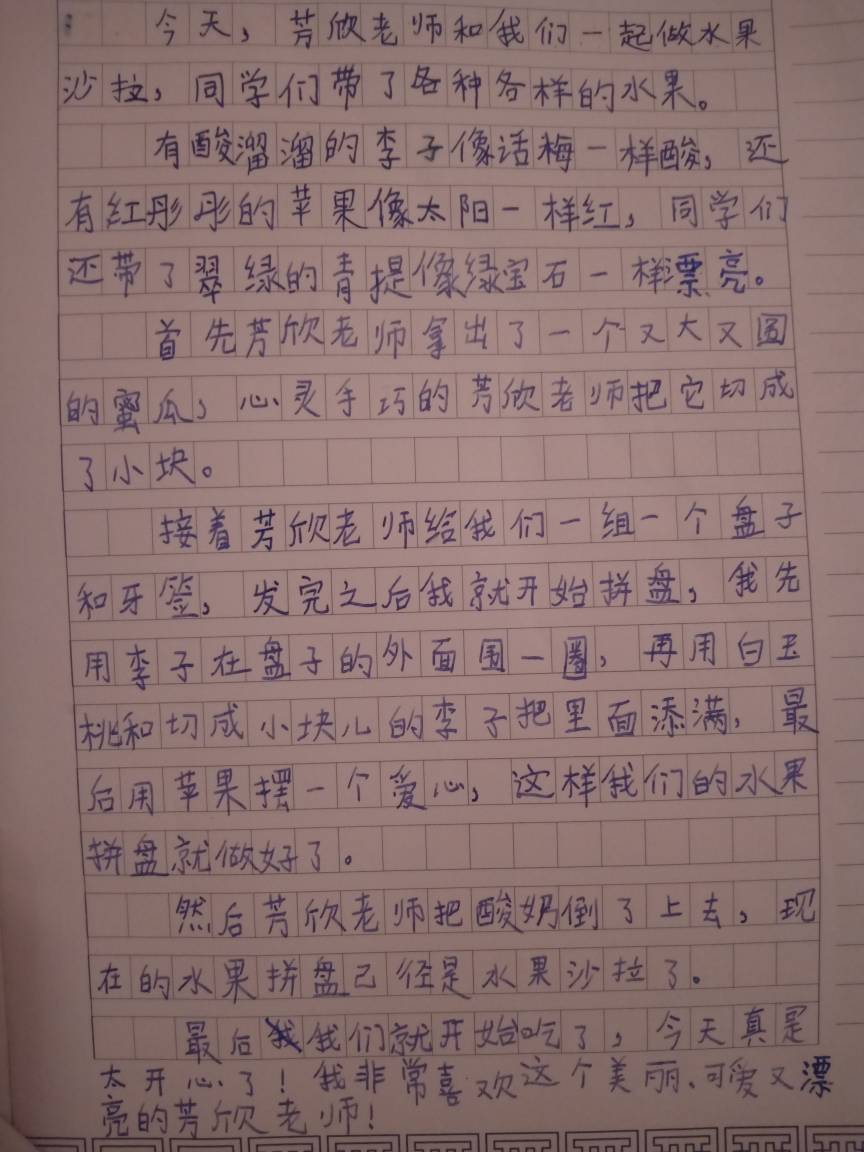 今天，芳欣老师和我们一起做水果
沙拉，同学们带了各种各样的水果。
有酸溜溜的李子像话梅一样酸，还
有红彤彤的苹果像太阳一样红，同学们
还带了翠绿的青提像绿宝石一样漂亮。
首先芳欣老师拿出了一个又大又圆
的蜜瓜，心灵手巧的芳欣老师把它切成
了小块。
接着芳欣老师给我们一组一个盘子
和牙签，发完之后我就开始拼盘，我先
用李子在盘子的外面围一圈，再用白玉
桃和切成小块儿的李子把里面添满，最
后用苹果摆一个爱心，这样我们的水果
拼盘就做好了。
然后芳欣老师把酸奶倒了上去，现
在的水果拼盘己径是水果沙拉了。
最后我们就开始吃了，今天真是
太开心了！我非常喜欢这个美丽、可爱又漂
亮的芳欣老师！